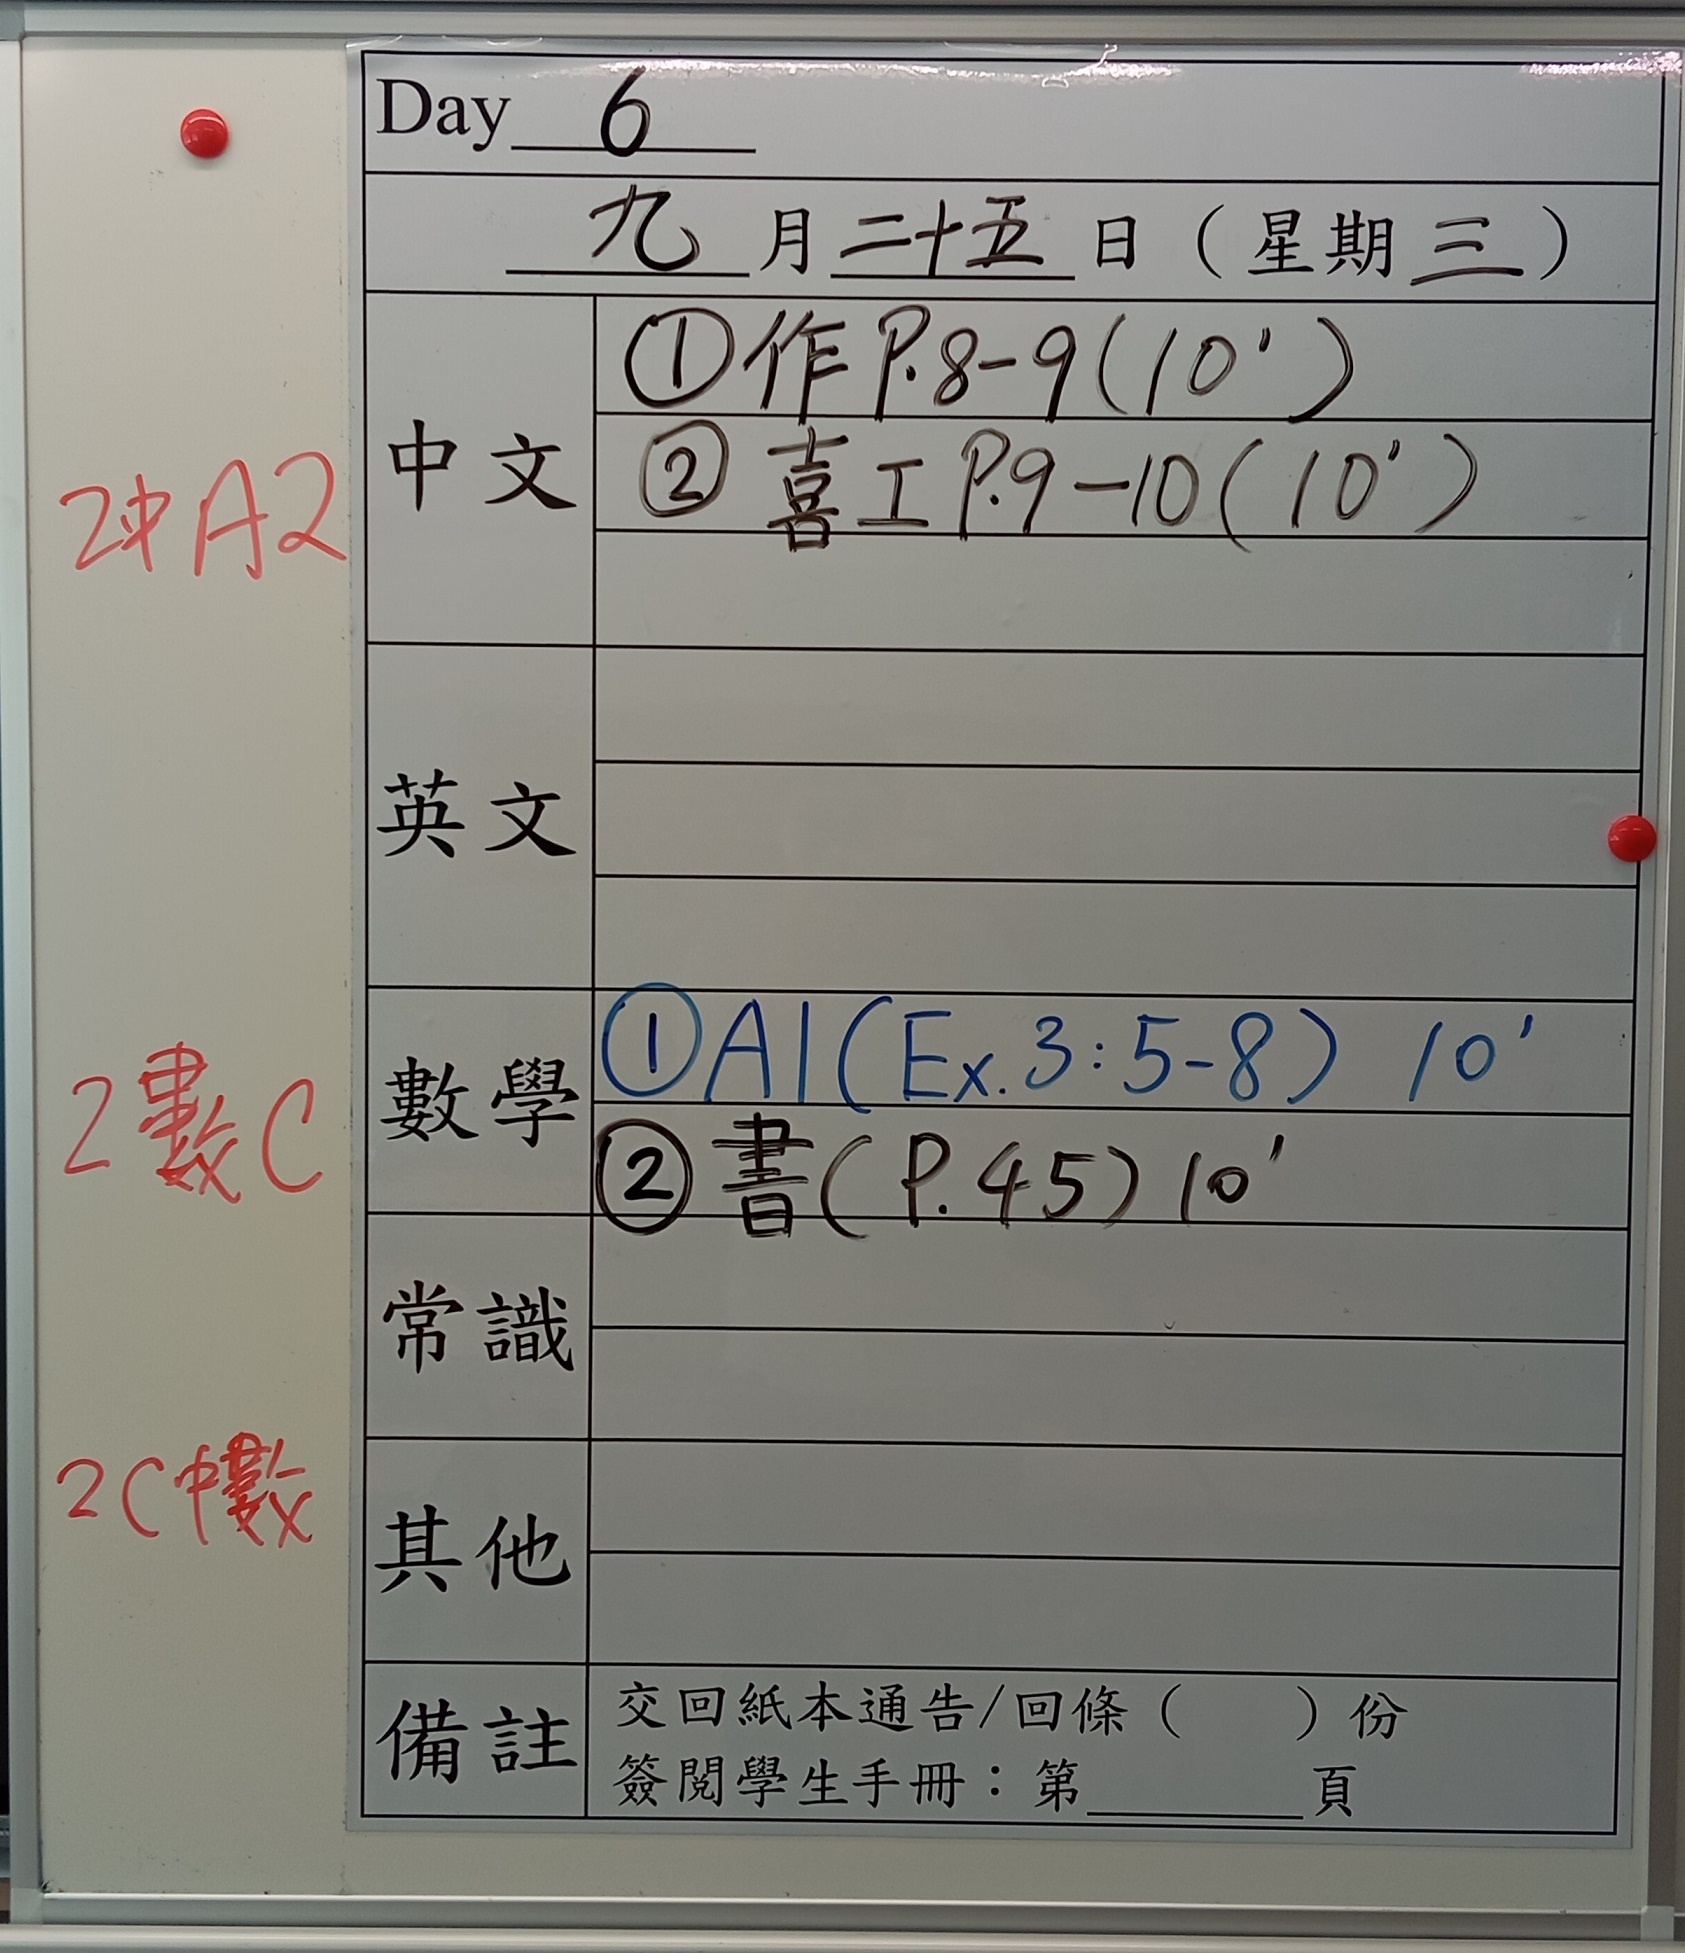 Day 6
九月二十五日（星期三）
中文
①作P.8-9(10')
②喜工P.9-10(10')
2中A2
英文
數學
①A1(Ex.3:5-8) 10'
②書(P.45) 10'
2數C
常識
2C中數
其他
備註
交回紙本通告/回條（ ）份
簽閱學生手冊：第____頁